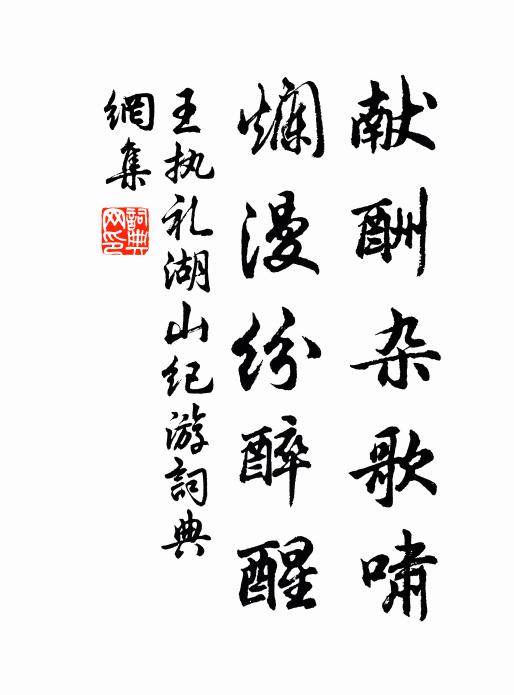 献酬杂歌啸
爛漫纷醉醒
王执礼湖山纪游詞典
網集
詞典网印